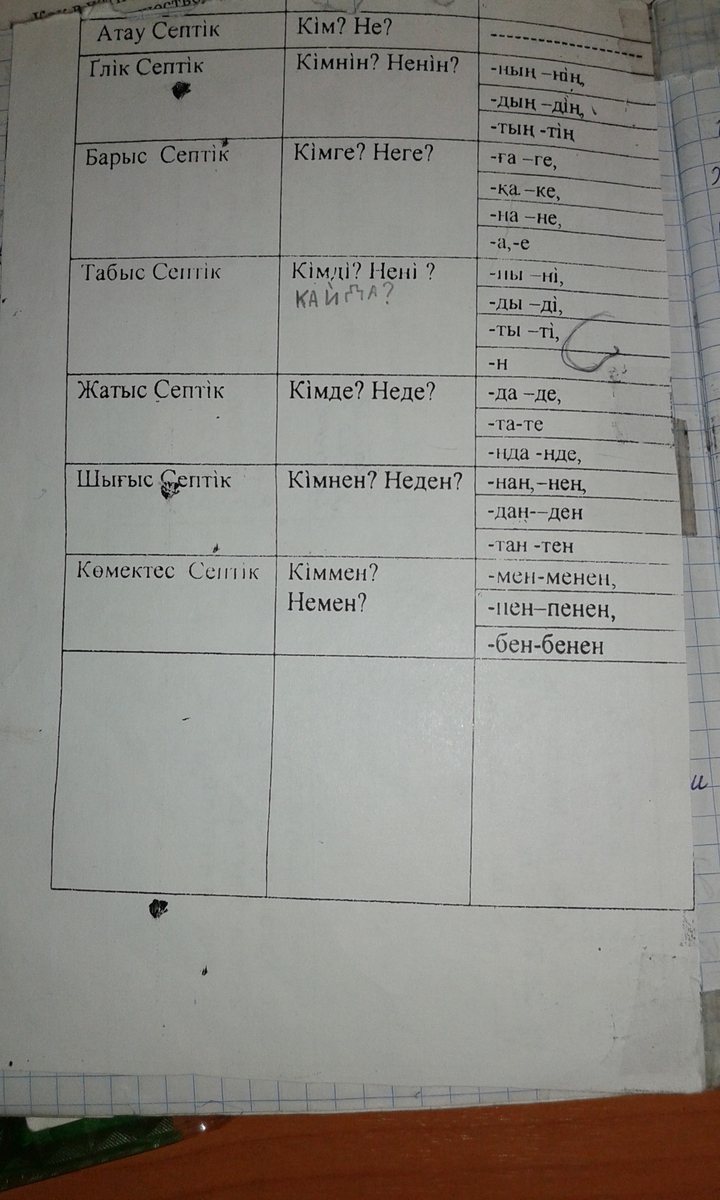 Атау Септік Кім? Не? --------------------
Ілік Септік Кімнін? Ненін? -ның –нің,
-дың –дің,
-тың -тің
Барыс Септік Кімге? Неге? -ға –ге,
-қа –ке,
-на –не,
-а,-е
Табыс Септік Кімді? Нені ? -ны –ні,
КАЙДА? -ды –ді,
-ты –ті,
-н
Жатыс Септік Кімде? Неде? -да –де,
-та-те
-нда -нде,
Шығыс Септік Кімнен? Неден? -нан,–нен,
-дан--ден
-тан -тен
Көмектес Септік Кіммен? -мен-менен,
Немен? -пен–пенен,
-бен-бенен
и